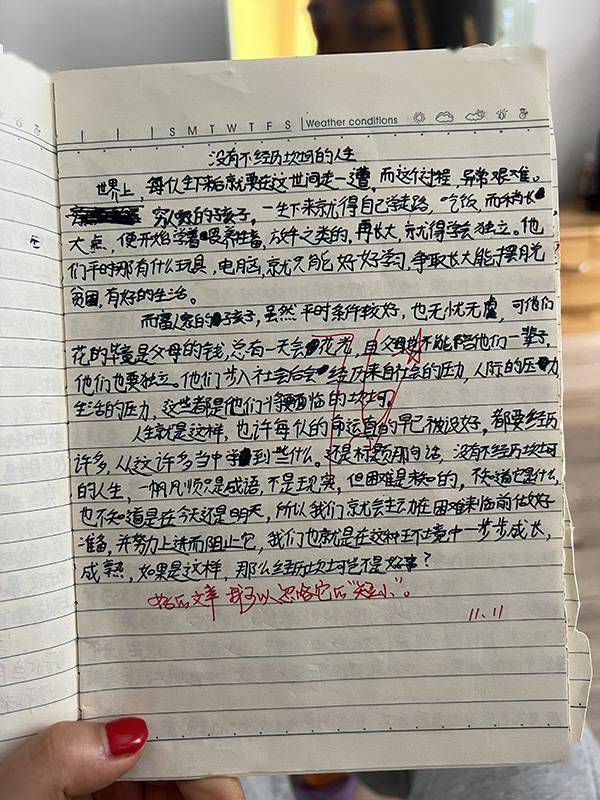 S M T W T F S Weather conditions
没有不经历坎坷的人生
世界上，每个人生下来后就要在这世间走一遭，而这个过程，异常艰难。
穷人家的孩子，一生下来就得自己学走路，吃饭，而稍长
大点，便开始学着喂养牲畜，放牛之类的，再长大，就得学会独立。他
们平时那有什么玩具，电脑，就只能好好学习，争取长大能摆脱
贫困，有好的生活。
而富人家的孩子，虽然平时条件较好，也无忧无虑，可他们
花的毕竟是父母的钱，总有一天会花光，自父母也不能陪他们一辈子，
他们也要独立。他们步入社会后会经历来自社会的压力，人际的压力
生活的压力，这些都是他们将要面临的坎坷。
人生就是这样，也许每个人的命运真的早已被设好，都要经历
许多，从这许多当中学到些什么。还是标题那句话，没有不经历坎坷
的人生，一帆风顺只是成语，不是现实，但困难是未知的，不知道它是什么，
也不知道是在今天还是明天，所以我们就会主动在困难来临前做好
准备，并努力上进而阻止它，我们也就是在这种环境中一步步成长，
成熟，如果是这样，那么经历坎坷岂不是好事？
文章 我可以忽略它的“短小”。
11.11